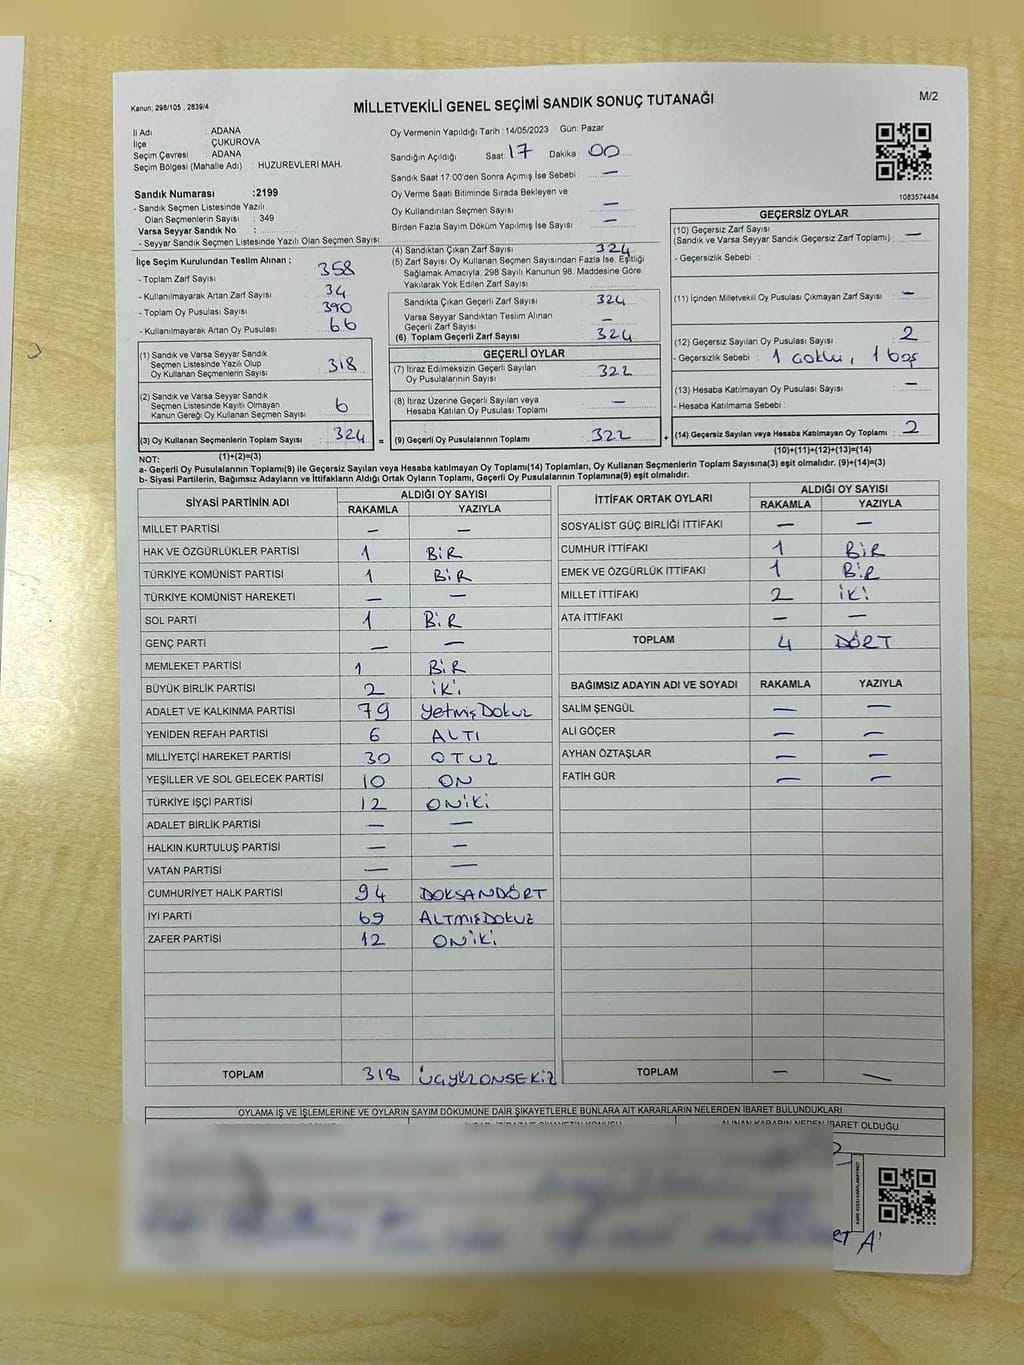 Kanun; 298/105 , 2839/4
MİLLETVEKİLİ GENEL SEÇİMİ SANDIK SONUÇ TUTANAĞI
M/2
İl Adı : ADANA
İlçe : ÇUKUROVA
Seçim Çevresi : ADANA
Seçim Bölgesi (Mahalle Adı) : HUZUREVLERİ MAH.
Sandık Numarası :2199
- Sandık Seçmen Listesinde Yazılı
Olan Seçmenlerin Sayısı : 349
Varsa Seyyar Sandık No :
- Seyyar Sandık Seçmen Listesinde Yazılı Olan Seçmen Sayısı:
Oy Vermenin Yapıldığı Tarih :14/05/2023 Gün: Pazar
Sandığın Açıldığı Saat: 17 Dakika 00
Sandık Saat 17:00'den Sonra Açımış İse Sebebi : —
Oy Verme Saati Bitiminde Sırada Bekleyen ve
Oy Kullandırılan Seçmen Sayısı : —
Birden Fazla Sayım Döküm Yapılmış İse Sayısı : —
1083574484
İlçe Seçim Kurulundan Teslim Alınan ;
- Toplam Zarf Sayısı : 358
- Kullanılmayarak Artan Zarf Sayısı : 34
- Toplam Oy Pusulası Sayısı : 390
- Kullanılmayarak Artan Oy Pusulası : 66
(1) Sandık ve Varsa Seyyar Sandık
Seçmen Listesinde Yazılı Olup
Oy Kullanan Seçmenlerin Sayısı : 318
(2) Sandık ve Varsa Seyyar Sandık
Seçmen Listesinde Kayıtlı Olmayan
Kanun Gereği Oy Kullanan Seçmen Sayısı : 6
(3) Oy Kullanan Seçmenlerin Toplam Sayısı : 324 =
(1)+(2)=(3)
(4) Sandıktan Çıkan Zarf Sayısı : 324
(5) Zarf Sayısı Oy Kullanan Seçmen Sayısından Fazla İse, Eşitliği
Sağlamak Amacıyla; 298 Sayılı Kanunun 98. Maddesine Göre
Yakılarak Yok Edilen Zarf Sayısı :
Sandıkta Çıkan Geçerli Zarf Sayısı : 324
Varsa Seyyar Sandıktan Teslim Alınan
Geçerli Zarf Sayısı : —
(6) Toplam Geçerli Zarf Sayısı : 324
GEÇERLİ OYLAR
(7) İtiraz Edilmeksizin Geçerli Sayılan
Oy Pusulalarının Sayısı : 322
(8) İtiraz Üzerine Geçerli Sayılan veya
Hesaba Katılan Oy Pusulası Toplamı : —
(9) Geçerli Oy Pusulalarının Toplamı : 322 +
GEÇERSİZ OYLAR
(10) Geçersiz Zarf Sayısı : —
(Sandık ve Varsa Seyyar Sandık Geçersiz Zarf Toplamı)
- Geçersizlik Sebebi :
(11) İçinden Milletvekili Oy Pusulası Çıkmayan Zarf Sayısı : —
(12) Geçersiz Sayılan Oy Pusulası Sayısı : 2
- Geçersizlik Sebebi : 1 çoklu, 1 boş
(13) Hesaba Katılmayan Oy Pusulası Sayısı : —
- Hesaba Katılmama Sebebi :
(14) Geçersiz Sayılan veya Hesaba Katılmayan Oy Pusulası Toplamı : 2
(10)+(11)+(12)+(13)=(14)
NOT:
a- Geçerli Oy Pusulalarının Toplamı(9) ile Geçersiz Sayılan veya Hesaba katılmayan Oy Toplamı(14) Toplamları, Oy Kullanan Seçmenlerin Toplam Sayısına(3) eşit olmalıdır. (9)+(14)=(3)
b- Siyasi Partilerin, Bağımsız Adayların ve İttifakların Aldığı Ortak Oyların Toplamı, Geçerli Oy Pusulalarının Toplamına(9) eşit olmalıdır.
SİYASİ PARTİNİN ADI ALDIĞI OY SAYISI
RAKAMLA YAZIYLA
MİLLET PARTİSİ — —
HAK VE ÖZGÜRLÜKLER PARTİSİ 1 BİR
TÜRKİYE KOMÜNİST PARTİSİ 1 BİR
TÜRKİYE KOMÜNİST HAREKETİ — —
SOL PARTİ 1 BİR
GENÇ PARTİ — —
MEMLEKET PARTİSİ 1 BİR
BÜYÜK BİRLİK PARTİSİ 2 İKİ
ADALET VE KALKINMA PARTİSİ 79 YetmişDokuz
YENİDEN REFAH PARTİSİ 6 ALTI
MİLLİYETÇİ HAREKET PARTİSİ 30 OTUZ
YEŞİLLER VE SOL GELECEK PARTİSİ 10 ON
TÜRKİYE İŞÇİ PARTİSİ 12 ONİKİ
ADALET BİRLİK PARTİSİ — —
HALKIN KURTULUŞ PARTİSİ — —
VATAN PARTİSİ — —
CUMHURİYET HALK PARTİSİ 94 DOKSANDÖRT
İYİ PARTİ 69 ALTMIŞDOKUZ
ZAFER PARTİSİ 12 ONİKİ
TOPLAM 318 ÜÇYÜZONSEKİZ
İTTİFAK ORTAK OYLARI ALDIĞI OY SAYISI
RAKAMLA YAZIYLA
SOSYALİST GÜÇ BİRLİĞİ İTTİFAKI — —
CUMHUR İTTİFAKI 1 BİR
EMEK VE ÖZGÜRLÜK İTTİFAKI 1 BİR
MİLLET İTTİFAKI 2 İKİ
ATA İTTİFAKI — —
TOPLAM 4 DÖRT
BAĞIMSIZ ADAYIN ADI VE SOYADI RAKAMLA YAZIYLA
SALİM ŞENGÜL — —
ALİ GÖÇER — —
AYHAN ÖZTAŞLAR — —
FATİH GÜR — —
TOPLAM — —
OYLAMA İŞ VE İŞLEMLERİNE VE OYLARIN SAYIM DÖKÜMÜNE DAİR ŞİKAYETLERLE BUNLARA AİT KARARLARIN NELERDEN İBARET BULUNDUKLARI
ALINAN KARARIN NEDEN İBARET OLDUĞU